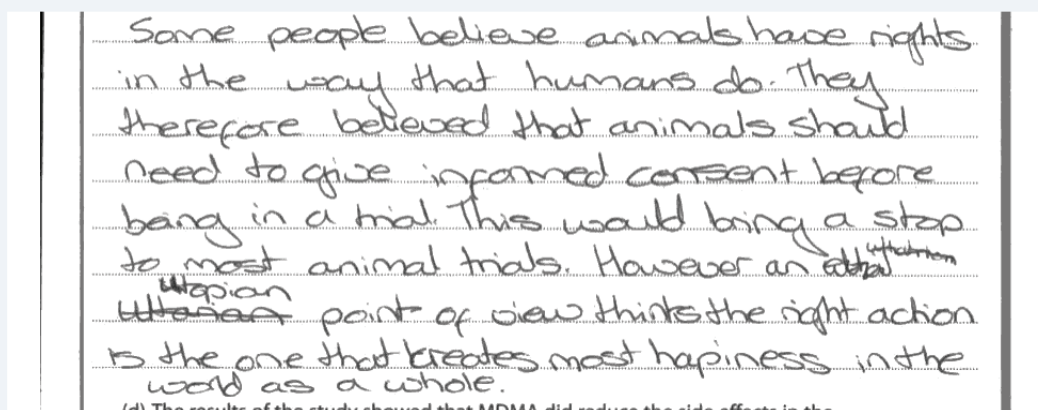 Some people believe animals have rights
in the way that humans do. They
therefore believed that animals should
need to give informed consent before
being in a trial. This would bring a stop
to most animal trials. However an
Utopian
point of view thinks the right action
is the one that creates most hapiness in the
world as a whole.
(d) The results of the study showed that MDMA did reduce the side effects in the